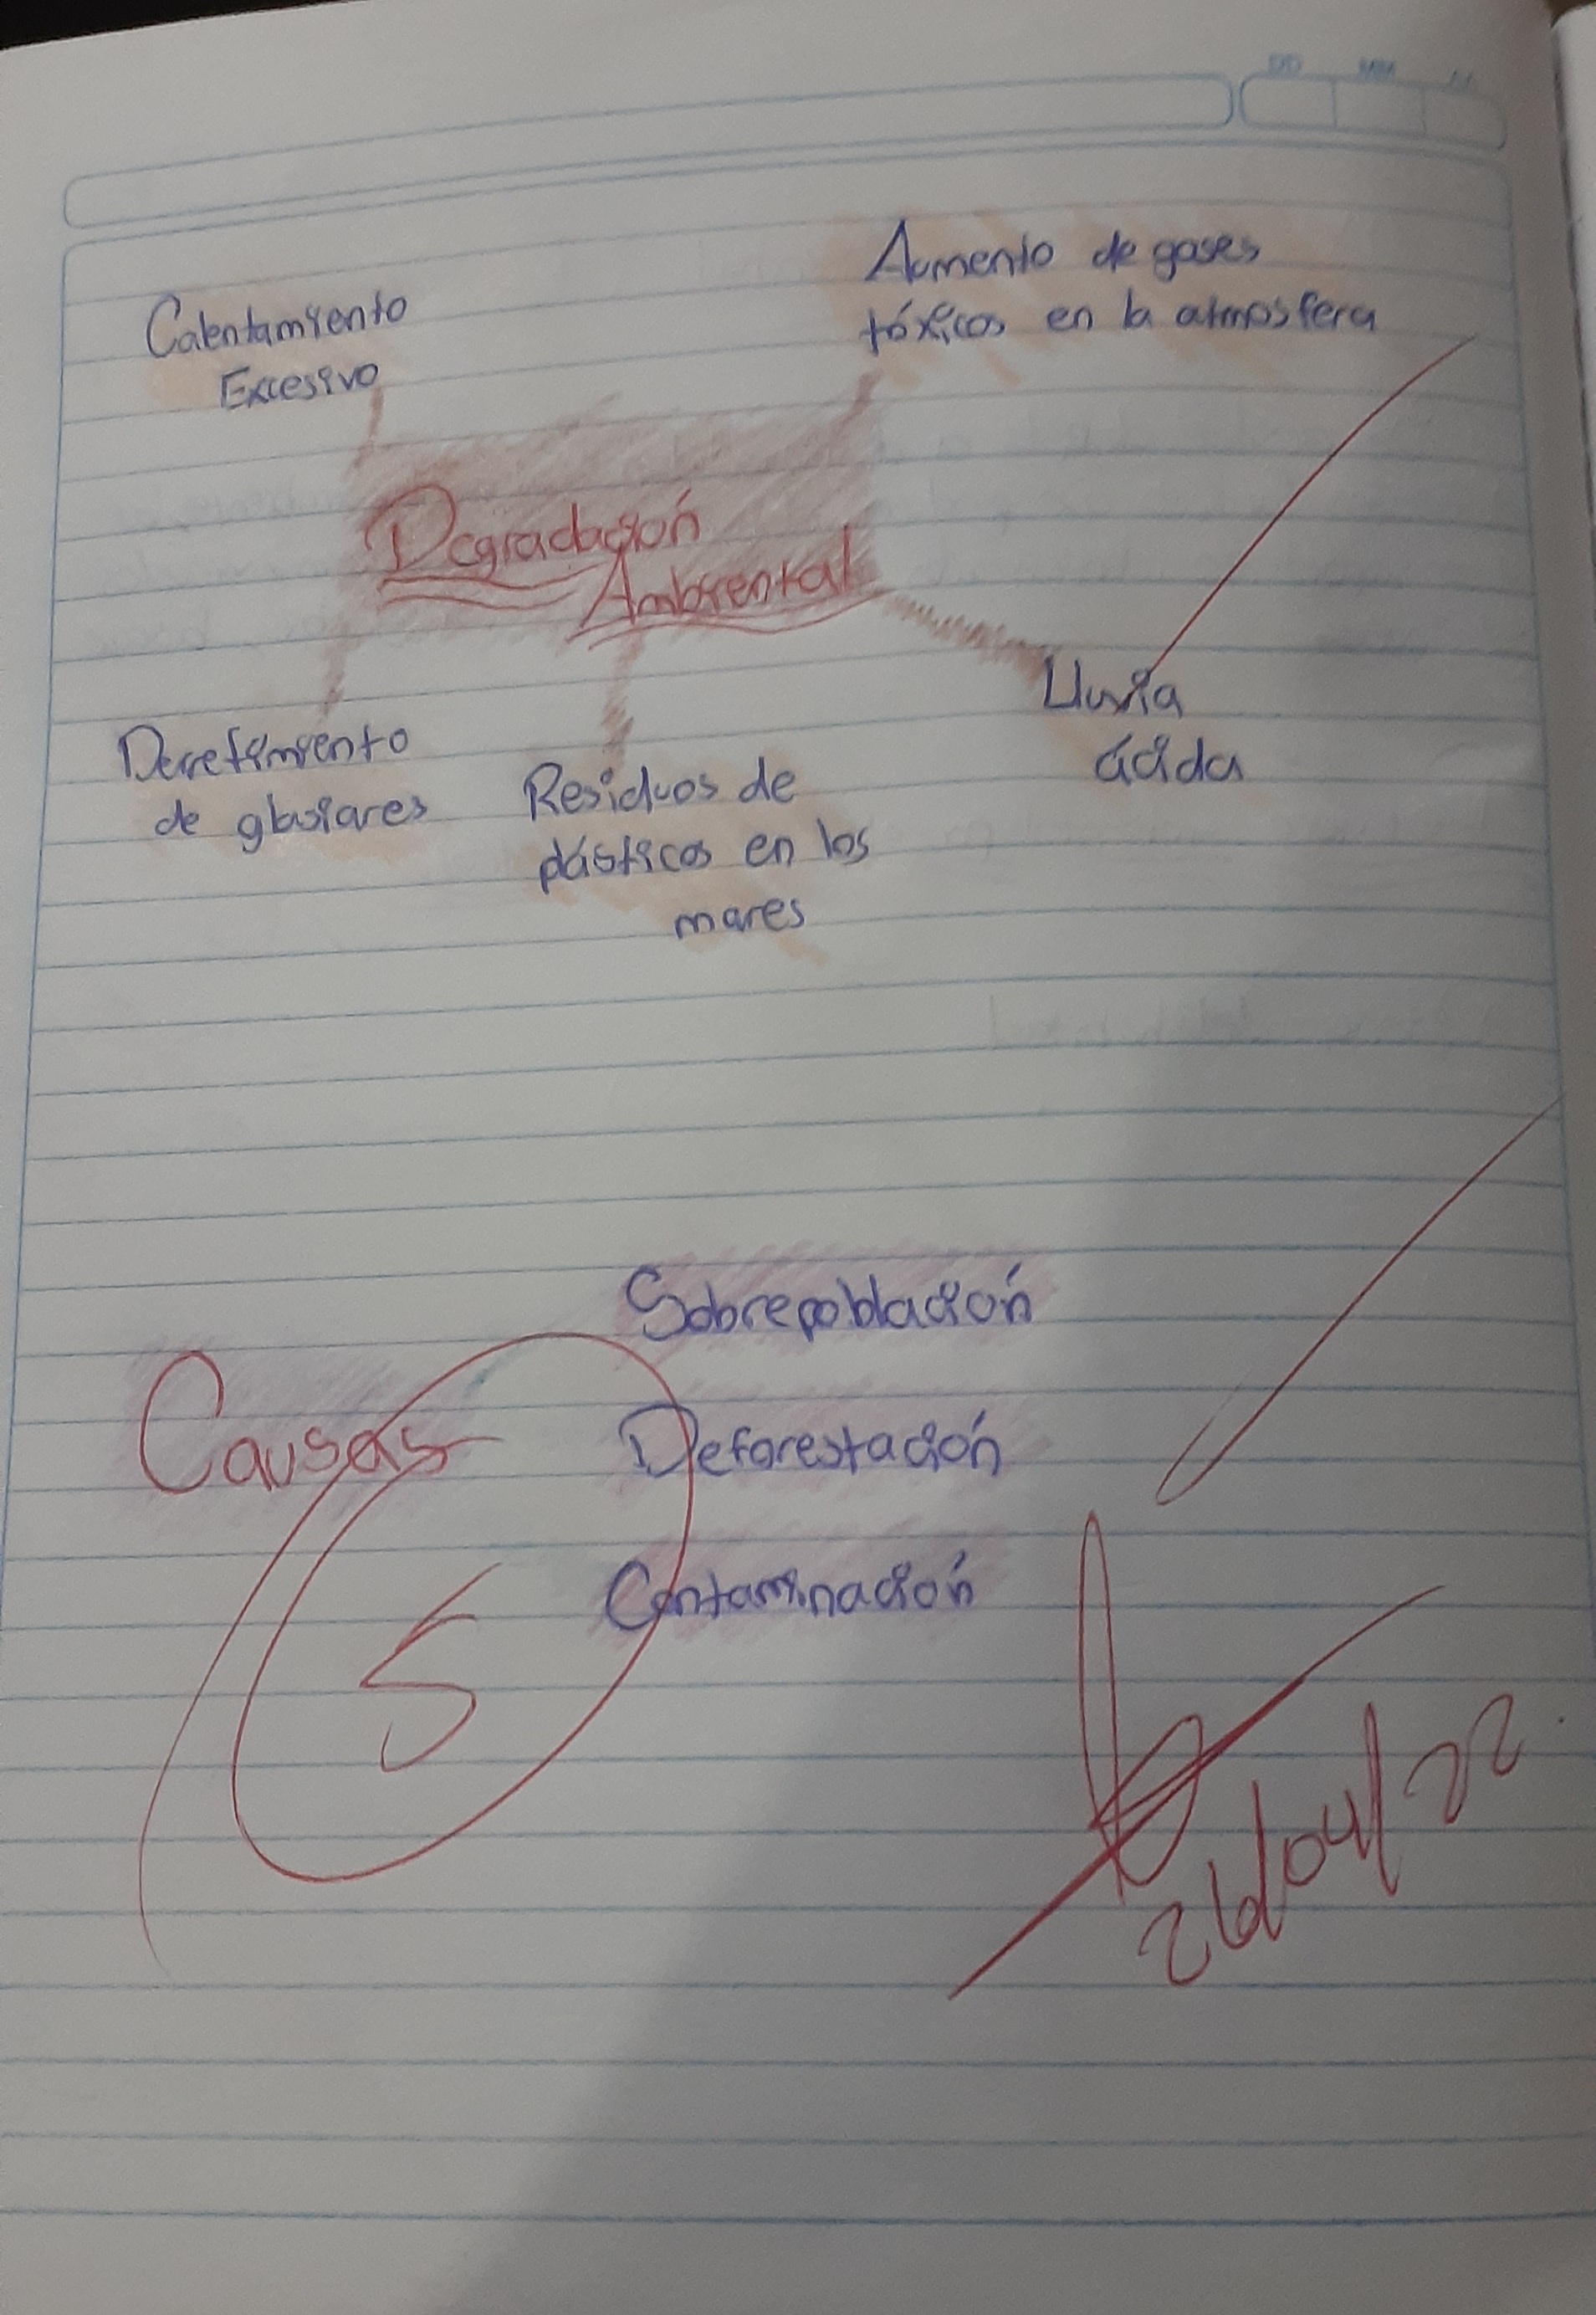 DD MM AA
Calentamiento
Excesivo
Aumento de gases
tóxicos en la atmosfera
Degradación
Ambiental
Derretimiento
de glasiares
Residuos de
plásticos en los
mares
Lluvia
ácida
Causas
Sobrepoblación
Deforestación
Contaminación
5
26/04/22